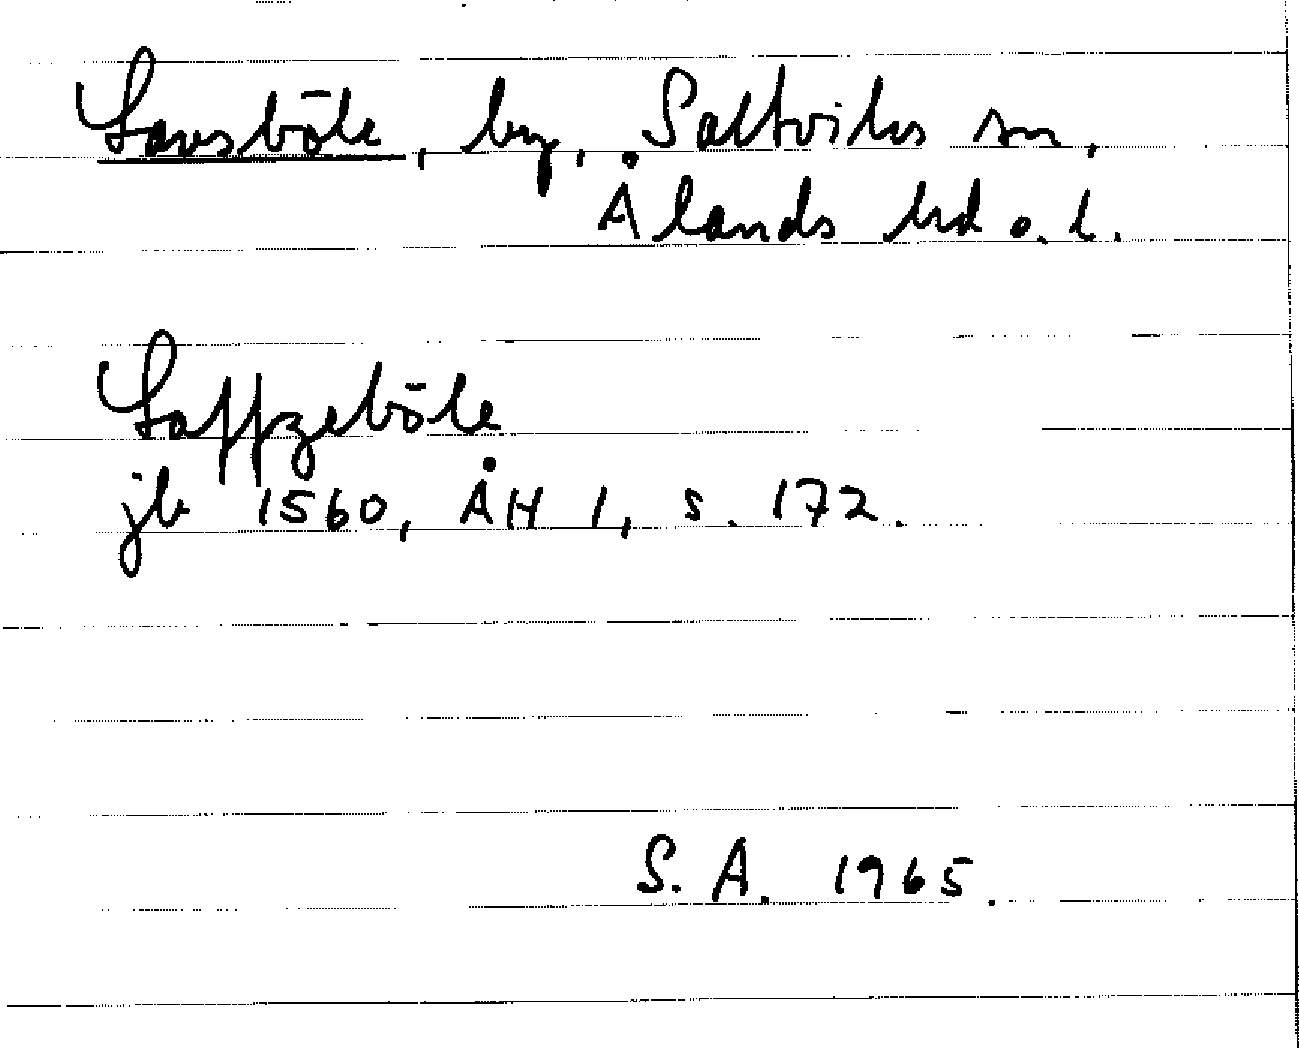 Lavsböle, by, Saltviks sn,
Ålands hd o. l.
Laffzeböle
jb 1560, ÅH 1, s. 172.
S. A. 1965.